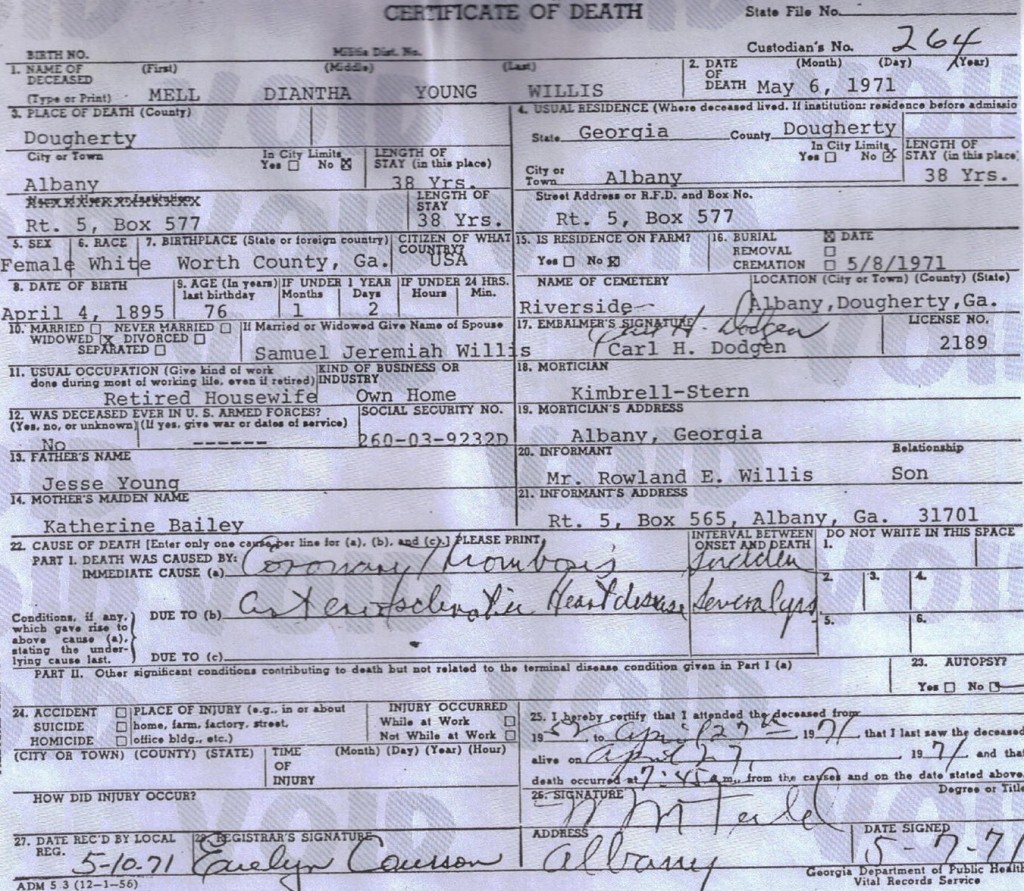 CERTIFICATE OF DEATH
State File No.
BIRTH NO. Militia Dist. No. Custodian's No. 264
1. NAME OF DECEASED (First) (Middle) (Last)
(Type or Print) MELL DIANTHA YOUNG WILLIS
2. DATE OF DEATH (Month) (Day) (Year)
May 6, 1971
3. PLACE OF DEATH (County)
Dougherty
City or Town In City Limits Yes ☐ No ☒ LENGTH OF STAY (in this place)
Albany 38 Yrs.
LENGTH OF STAY
Rt. 5, Box 577 38 Yrs.
4. USUAL RESIDENCE (Where deceased lived. If institution: residence before admissio
State Georgia County Dougherty
City or Town Albany In City Limits Yes ☐ No ☒ LENGTH OF STAY (in this place)
38 Yrs.
Street Address or R.F.D. and Box No.
Rt. 5, Box 577
5. SEX 6. RACE 7. BIRTHPLACE (State or foreign country) CITIZEN OF WHAT COUNTRY?
Female White Worth County, Ga. USA
15. IS RESIDENCE ON FARM? Yes ☐ No ☒
16. BURIAL ☒ DATE
REMOVAL ☐
CREMATION ☐ 5/8/1971
8. DATE OF BIRTH 9. AGE (In years) last birthday IF UNDER 1 YEAR Months Days IF UNDER 24 HRS. Hours Min.
April 4, 1895 76 1 2
NAME OF CEMETERY LOCATION (City or Town) (County) (State)
Riverside Albany,Dougherty,Ga.
10. MARRIED ☐ NEVER MARRIED ☐
WIDOWED ☒ DIVORCED ☐
SEPARATED ☐
If Married or Widowed Give Name of Spouse
Samuel Jeremiah Willis
17. EMBALMER'S SIGNATURE LICENSE NO.
Carl H. Dodgen
Carl H. Dodgen 2189
11. USUAL OCCUPATION (Give kind of work done during most of working life, even if retired) KIND OF BUSINESS OR INDUSTRY
Retired Housewife Own Home
18. MORTICIAN
Kimbrell-Stern
12. WAS DECEASED EVER IN U. S. ARMED FORCES?
(Yes, no, or unknown) (If yes, give war or dates of service) SOCIAL SECURITY NO.
No ------ 260-03-9232D
19. MORTICIAN'S ADDRESS
Albany, Georgia
13. FATHER'S NAME
Jesse Young
20. INFORMANT Relationship
Mr. Rowland E. Willis Son
14. MOTHER'S MAIDEN NAME
Katherine Bailey
21. INFORMANT'S ADDRESS
Rt. 5, Box 565, Albany, Ga. 31701
22. CAUSE OF DEATH [Enter only one cause per line for (a), (b), and (c).] PLEASE PRINT INTERVAL BETWEEN ONSET AND DEATH
PART I. DEATH WAS CAUSED BY:
IMMEDIATE CAUSE (a) Coronary Thrombosis Sudden
Conditions, if any, which gave rise to above cause (a), stating the underlying cause last.
DUE TO (b) arteriosclerotic Heart disease Several yrs
DUE TO (c)
DO NOT WRITE IN THIS SPACE
1.
2. 3. 4.
5. 6.
PART II. Other significant conditions contributing to death but not related to the terminal disease condition given in Part I (a)
23. AUTOPSY?
Yes ☐ No ☐
24. ACCIDENT ☐
SUICIDE ☐
HOMICIDE ☐
PLACE OF INJURY (e.g., in or about home, farm, factory, street, office bldg., etc.)
INJURY OCCURRED
While at Work ☐
Not While at Work ☐
(CITY OR TOWN) (COUNTY) (STATE) TIME OF INJURY (Month) (Day) (Year) (Hour)
HOW DID INJURY OCCUR?
25. I hereby certify that I attended the deceased from
1952 to April 27th 1971 that I last saw the deceased
alive on April 27, 1971 and that
death occurred at 7:45 a m., from the causes and on the date stated above
26. SIGNATURE Degree or Title
27. DATE REC'D BY LOCAL REG. 5-10-71
28. REGISTRAR'S SIGNATURE
Evelyn Cousson
ADDRESS Albany
DATE SIGNED 5-7-71
ADM 5.3 (12-1-56)
Georgia Department of Public Health
Vital Records Service
VOID